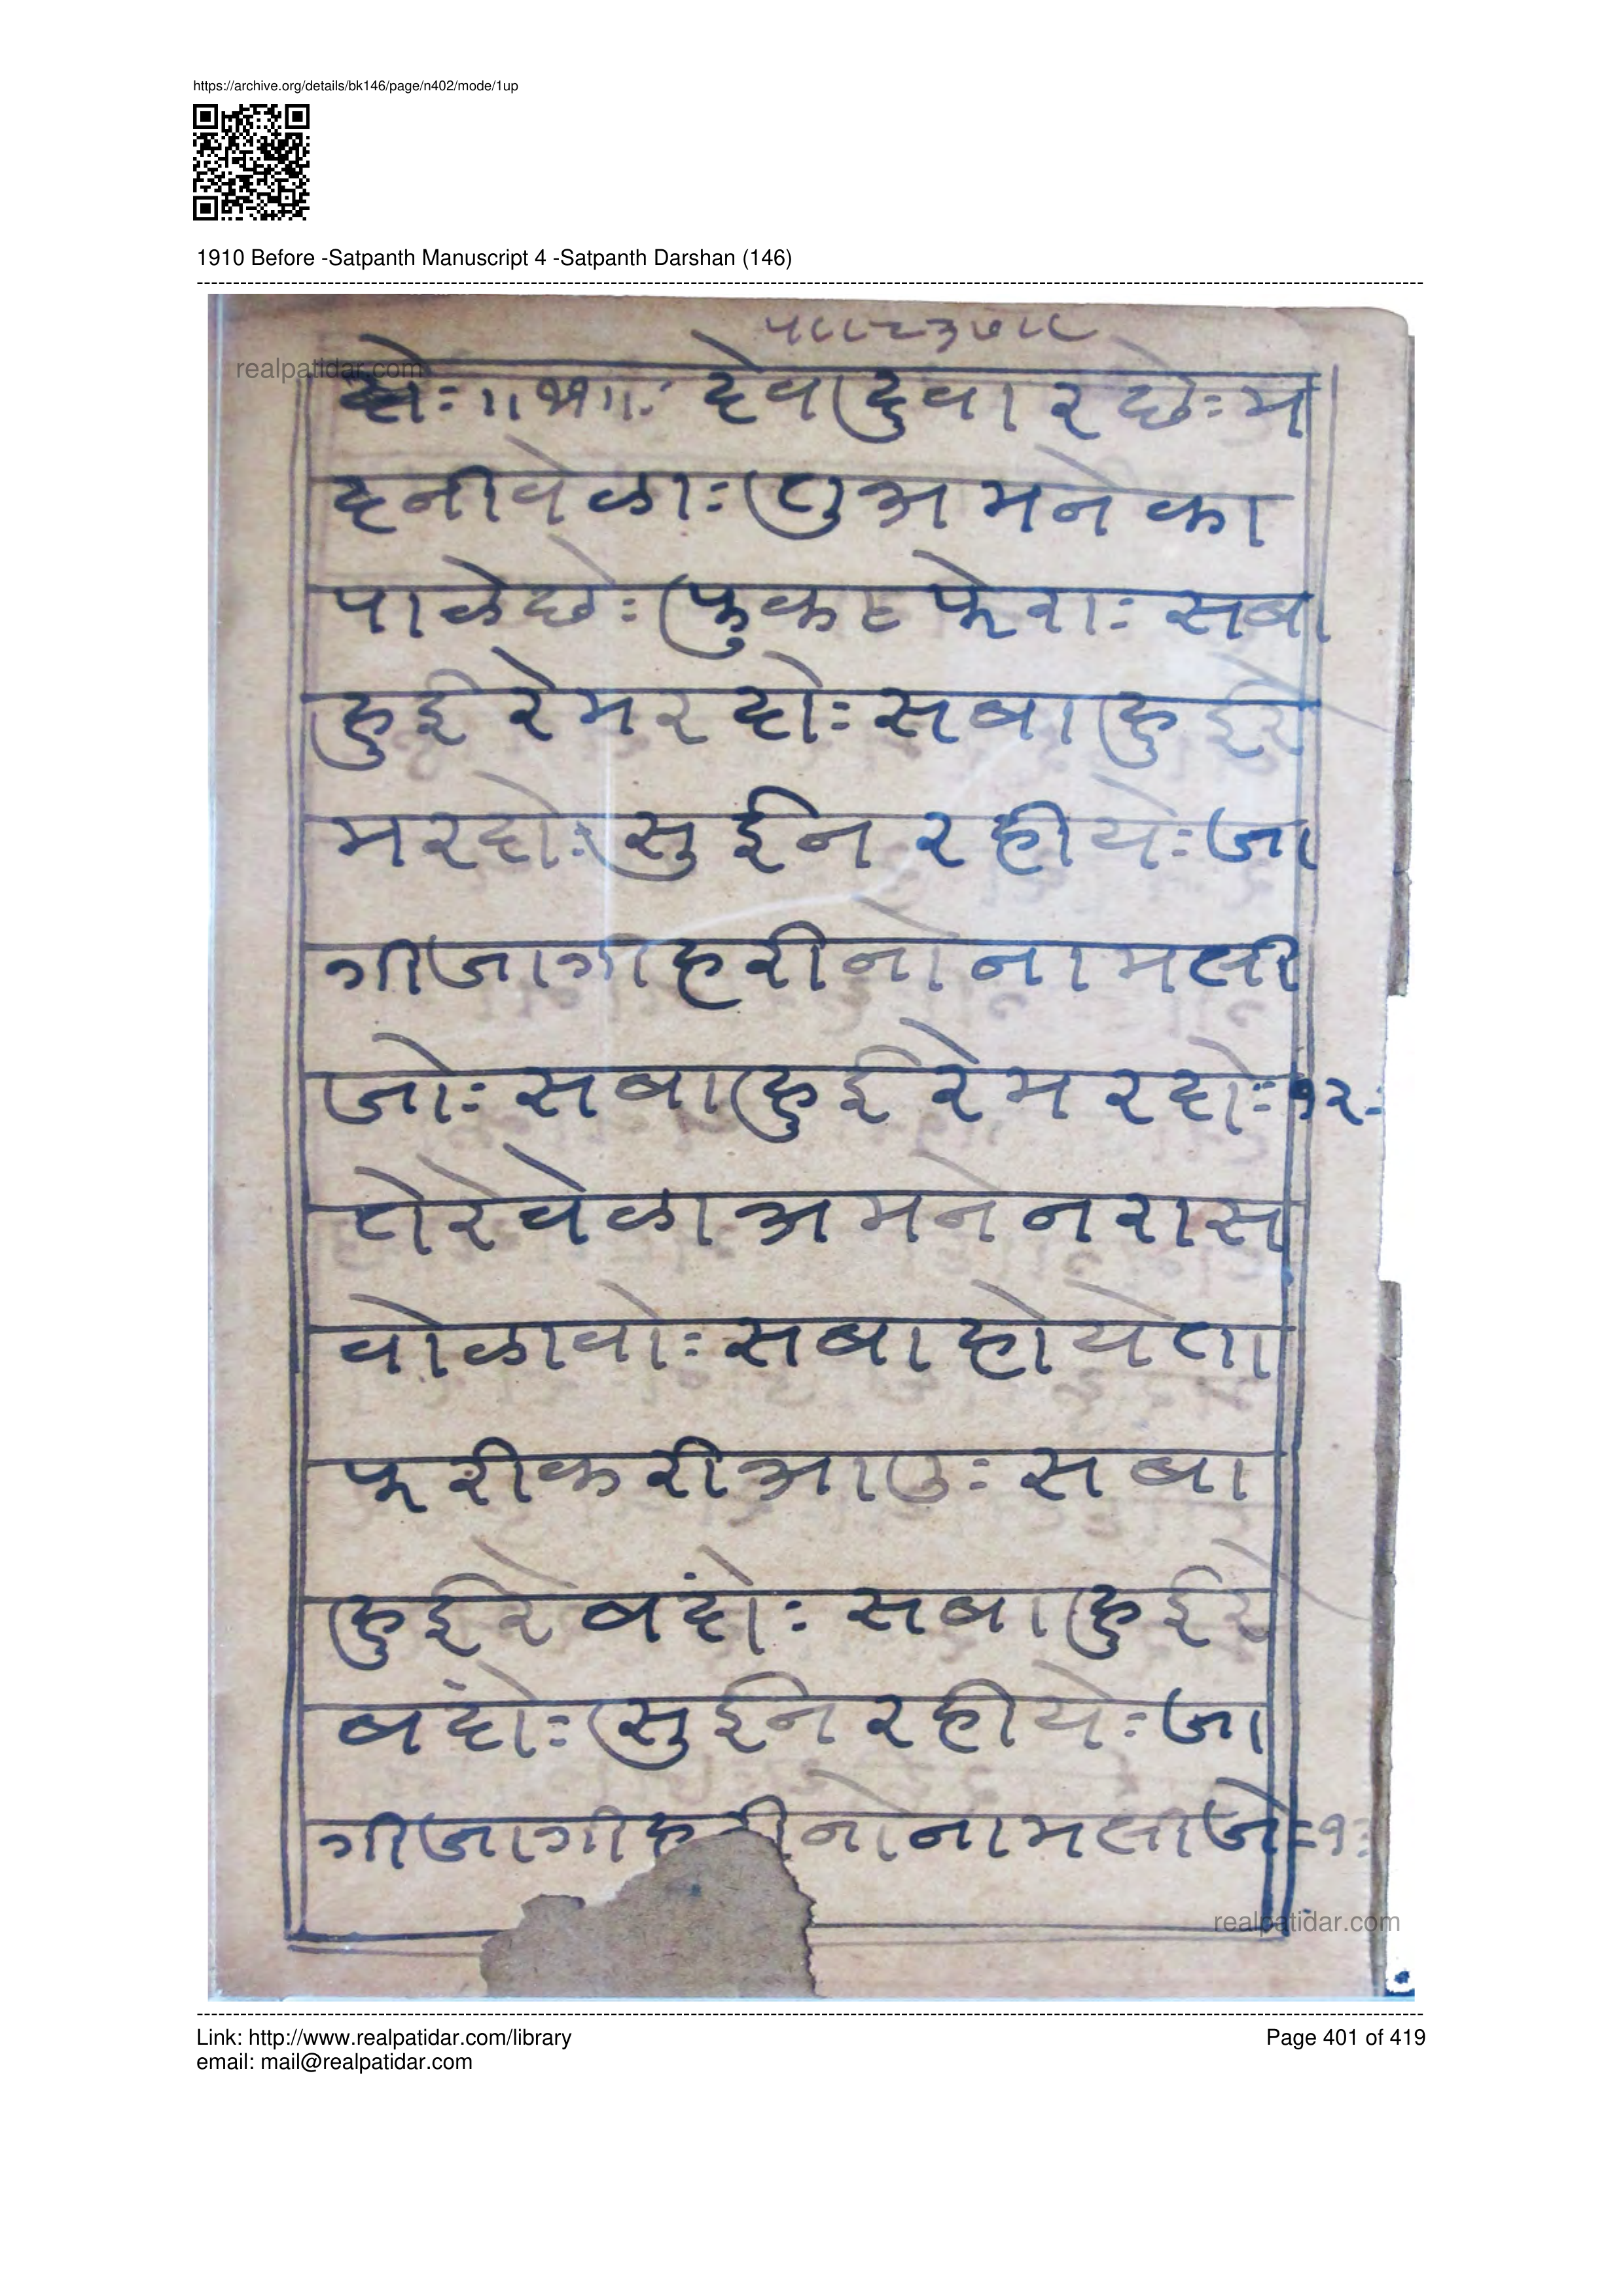 https://archive.org/details/bk146/page/n402/mode/1up
1910 Before -Satpanth Manuscript 4 -Satpanth Darshan (146)
realpatidar.com
॥११॥ः देवादुवारछेः म
दनीवेळाः तुअमनेका
पाळेछेः फुकटफेराः सबा
हुईरेमरदोः सबाहुईरे
मरदोः सुईनरहीयेः जा
गीजागीहरीनोनामली
जोः सबाहुईरेमरदोः १२ः
तोरेवेळाअमनेनरास
वोळावोः सबाहोयेता
फरीकरीआउः सबा
हुईरेबंदोः सबाहुईरे
बंदोः सुईनरहीयेः जा
गीजागीह नोनामलीजेः १३
realpatidar.com
Link: http://www.realpatidar.com/library
Page 401 of 419
email: mail@realpatidar.com